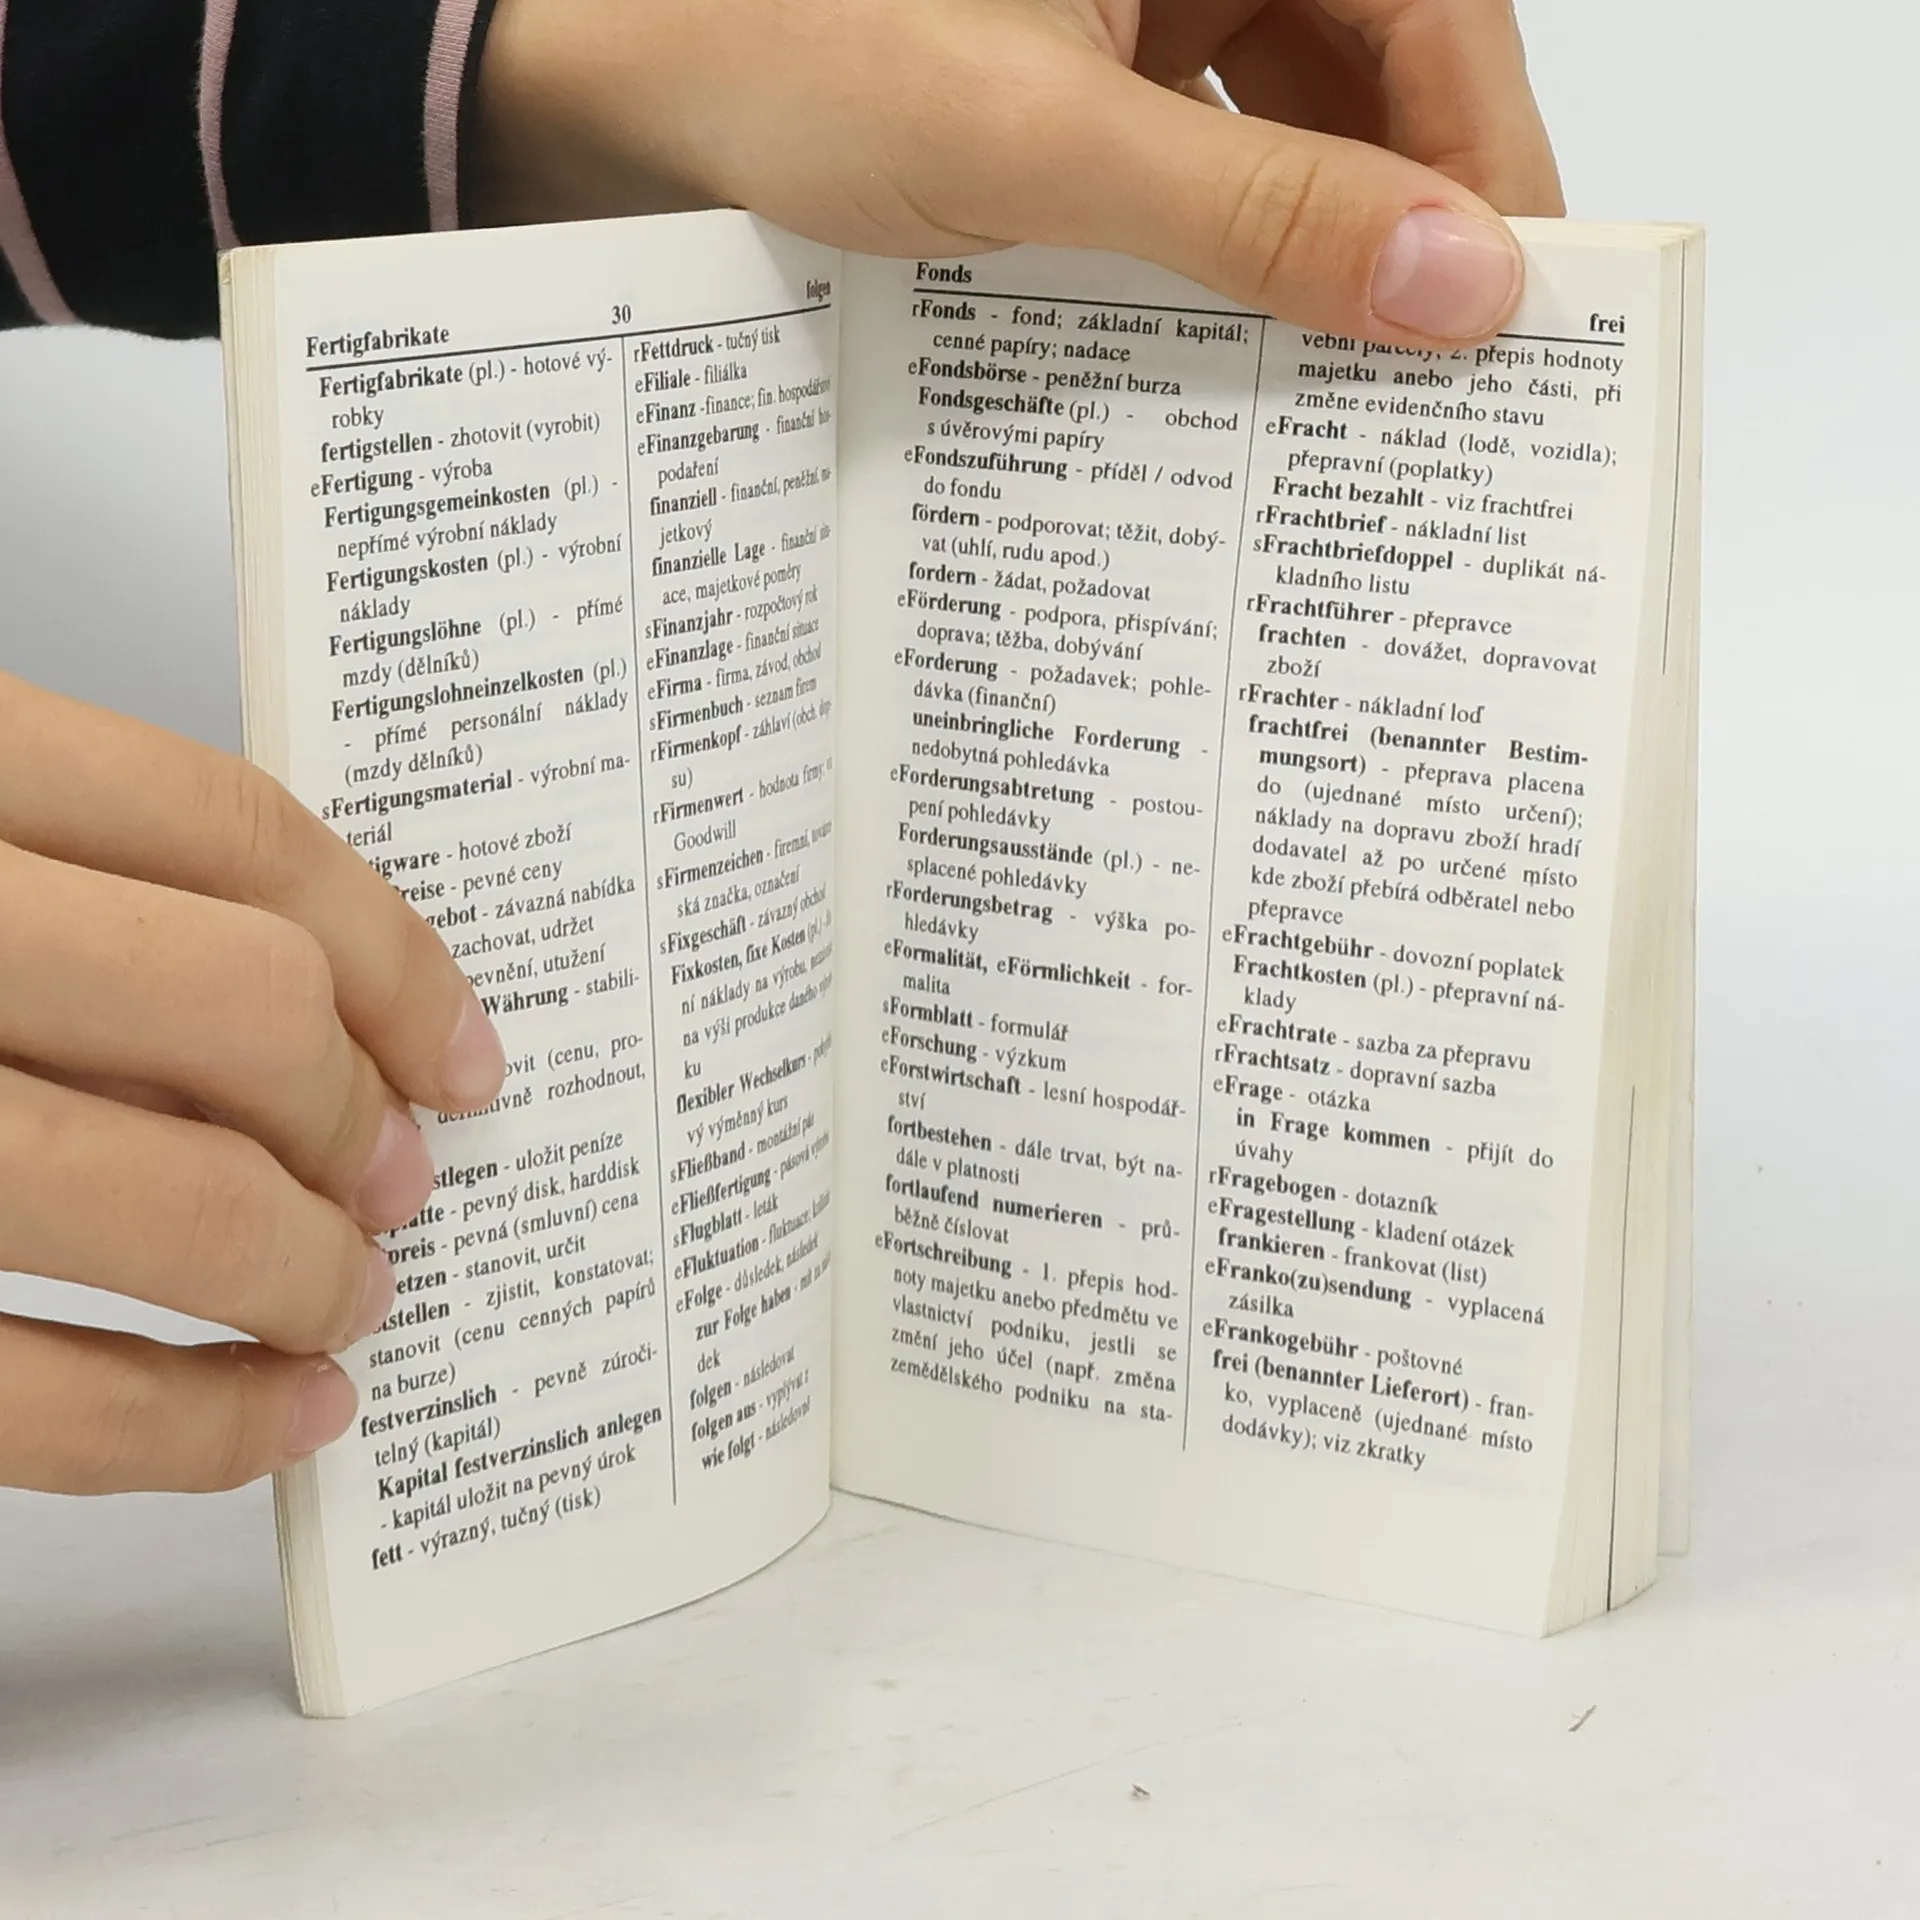 Fertigfabrikate
30
folgen
Fertigfabrikate (pl.) - hotové vý-
robky
fertigstellen - zhotovit (vyrobit)
eFertigung - výroba
Fertigungsgemeinkosten (pl.) -
nepřímé výrobní náklady
Fertigungskosten (pl.) - výrobní
náklady
Fertigungslöhne (pl.) - přímé
mzdy (dělníků)
Fertigungslohneinzelkosten (pl.)
- přímé personální náklady
(mzdy dělníků)
sFertigungsmaterial - výrobní ma-
teriál
- hotové zboží
- pevné ceny
- závazná nabídka
zachovat, udržet
utužení
Währung - stabili-
(cenu, pro-
rozhodnout,
- uložit peníze
- pevný disk, harddisk
- pevná (smluvní) cena
- stanovit, určit
- zjistit, konstatovat;
stanovit (cenu cenných papírů
na burze)
festverzinslich - pevně zúroči-
telný (kapitál)
Kapital festverzinslich anlegen
- kapitál uložit na pevný úrok
fett - výrazný, tučný (tisk)
rFettdruck - tučný tisk
eFiliale - filiálka
eFinanz -finance; fin. hospodářství
eFinanzgebarung - finanční ho-
podaření
finanziell - finanční, peněžní,
jetkový
finanzielle Lage - finanční
ace, majetkové poměry
sFinanzjahr - rozpočtový rok
eFinanzlage - finanční situace
eFirma - firma, závod, obchod
sFirmenbuch - seznam firem
rFirmenkopf - záhlaví (obch.
su)
rFirmenwert - hodnota firmy;
Goodwill
sFirmenzeichen - firemní,
ská značka, označení
sFixgeschäft - závazný obchod
Fixkosten, fixe Kosten (pl.)
ní náklady na výrobu,
na výši produkce daného
ku
flexibler Wechselkurs -
vý výměnný kurs
sFließband - montážní pás
eFließfertigung - pásová výroba
sFlugblatt - leták
eFluktuation - fluktuace;
eFolge - důsledek, následek
zur Folge haben - mít za
dek
folgen - následovat
folgen aus - vyplývat z
wie folgt - následovně
Fonds
frei
rFonds - fond; základní kapitál;
cenné papíry; nadace
eFondsbörse - peněžní burza
Fondsgeschäfte (pl.) - obchod
s úvěrovými papíry
eFondszuführung - příděl / odvod
do fondu
fördern - podporovat; těžit, dobý-
vat (uhlí, rudu apod.)
fordern - žádat, požadovat
eFörderung - podpora, přispívání;
doprava; těžba, dobývání
eForderung - požadavek; pohle-
dávka (finanční)
uneinbringliche Forderung -
nedobytná pohledávka
eForderungsabtretung - postou-
pení pohledávky
Forderungsausstände (pl.) - ne-
splacené pohledávky
rForderungsbetrag - výška po-
hledávky
eFormalität, eFörmlichkeit - for-
malita
sFormblatt - formulář
eForschung - výzkum
eForstwirtschaft - lesní hospodář-
ství
fortbestehen - dále trvat, být na-
dále v platnosti
fortlaufend numerieren - prů-
běžně číslovat
eFortschreibung - 1. přepis hod-
noty majetku anebo předmětu ve
vlastnictví podniku, jestli se
změní jeho účel (např. změna
zemědělského podniku na sta-
vební parcely; 2. přepis hodnoty
majetku anebo jeho části, při
změne evidenčního stavu
eFracht - náklad (lodě, vozidla);
přepravní (poplatky)
Fracht bezahlt - viz frachtfrei
rFrachtbrief - nákladní list
sFrachtbriefdoppel - duplikát ná-
kladního listu
rFrachtführer - přepravce
frachten - dovážet, dopravovat
zboží
rFrachter - nákladní loď
frachtfrei (benannter Bestim-
mungsort) - přeprava placena
do (ujednané místo určení);
náklady na dopravu zboží hradí
dodavatel až po určené místo
kde zboží přebírá odběratel nebo
přepravce
eFrachtgebühr - dovozní poplatek
Frachtkosten (pl.) - přepravní ná-
klady
eFrachtrate - sazba za přepravu
rFrachtsatz - dopravní sazba
eFrage - otázka
in Frage kommen - přijít do
úvahy
rFragebogen - dotazník
eFragestellung - kladení otázek
frankieren - frankovat (list)
eFranko(zu)sendung - vyplacená
zásilka
eFrankogebühr - poštovné
frei (benannter Lieferort) - fran-
ko, vyplaceně (ujednané místo
dodávky); viz zkratky